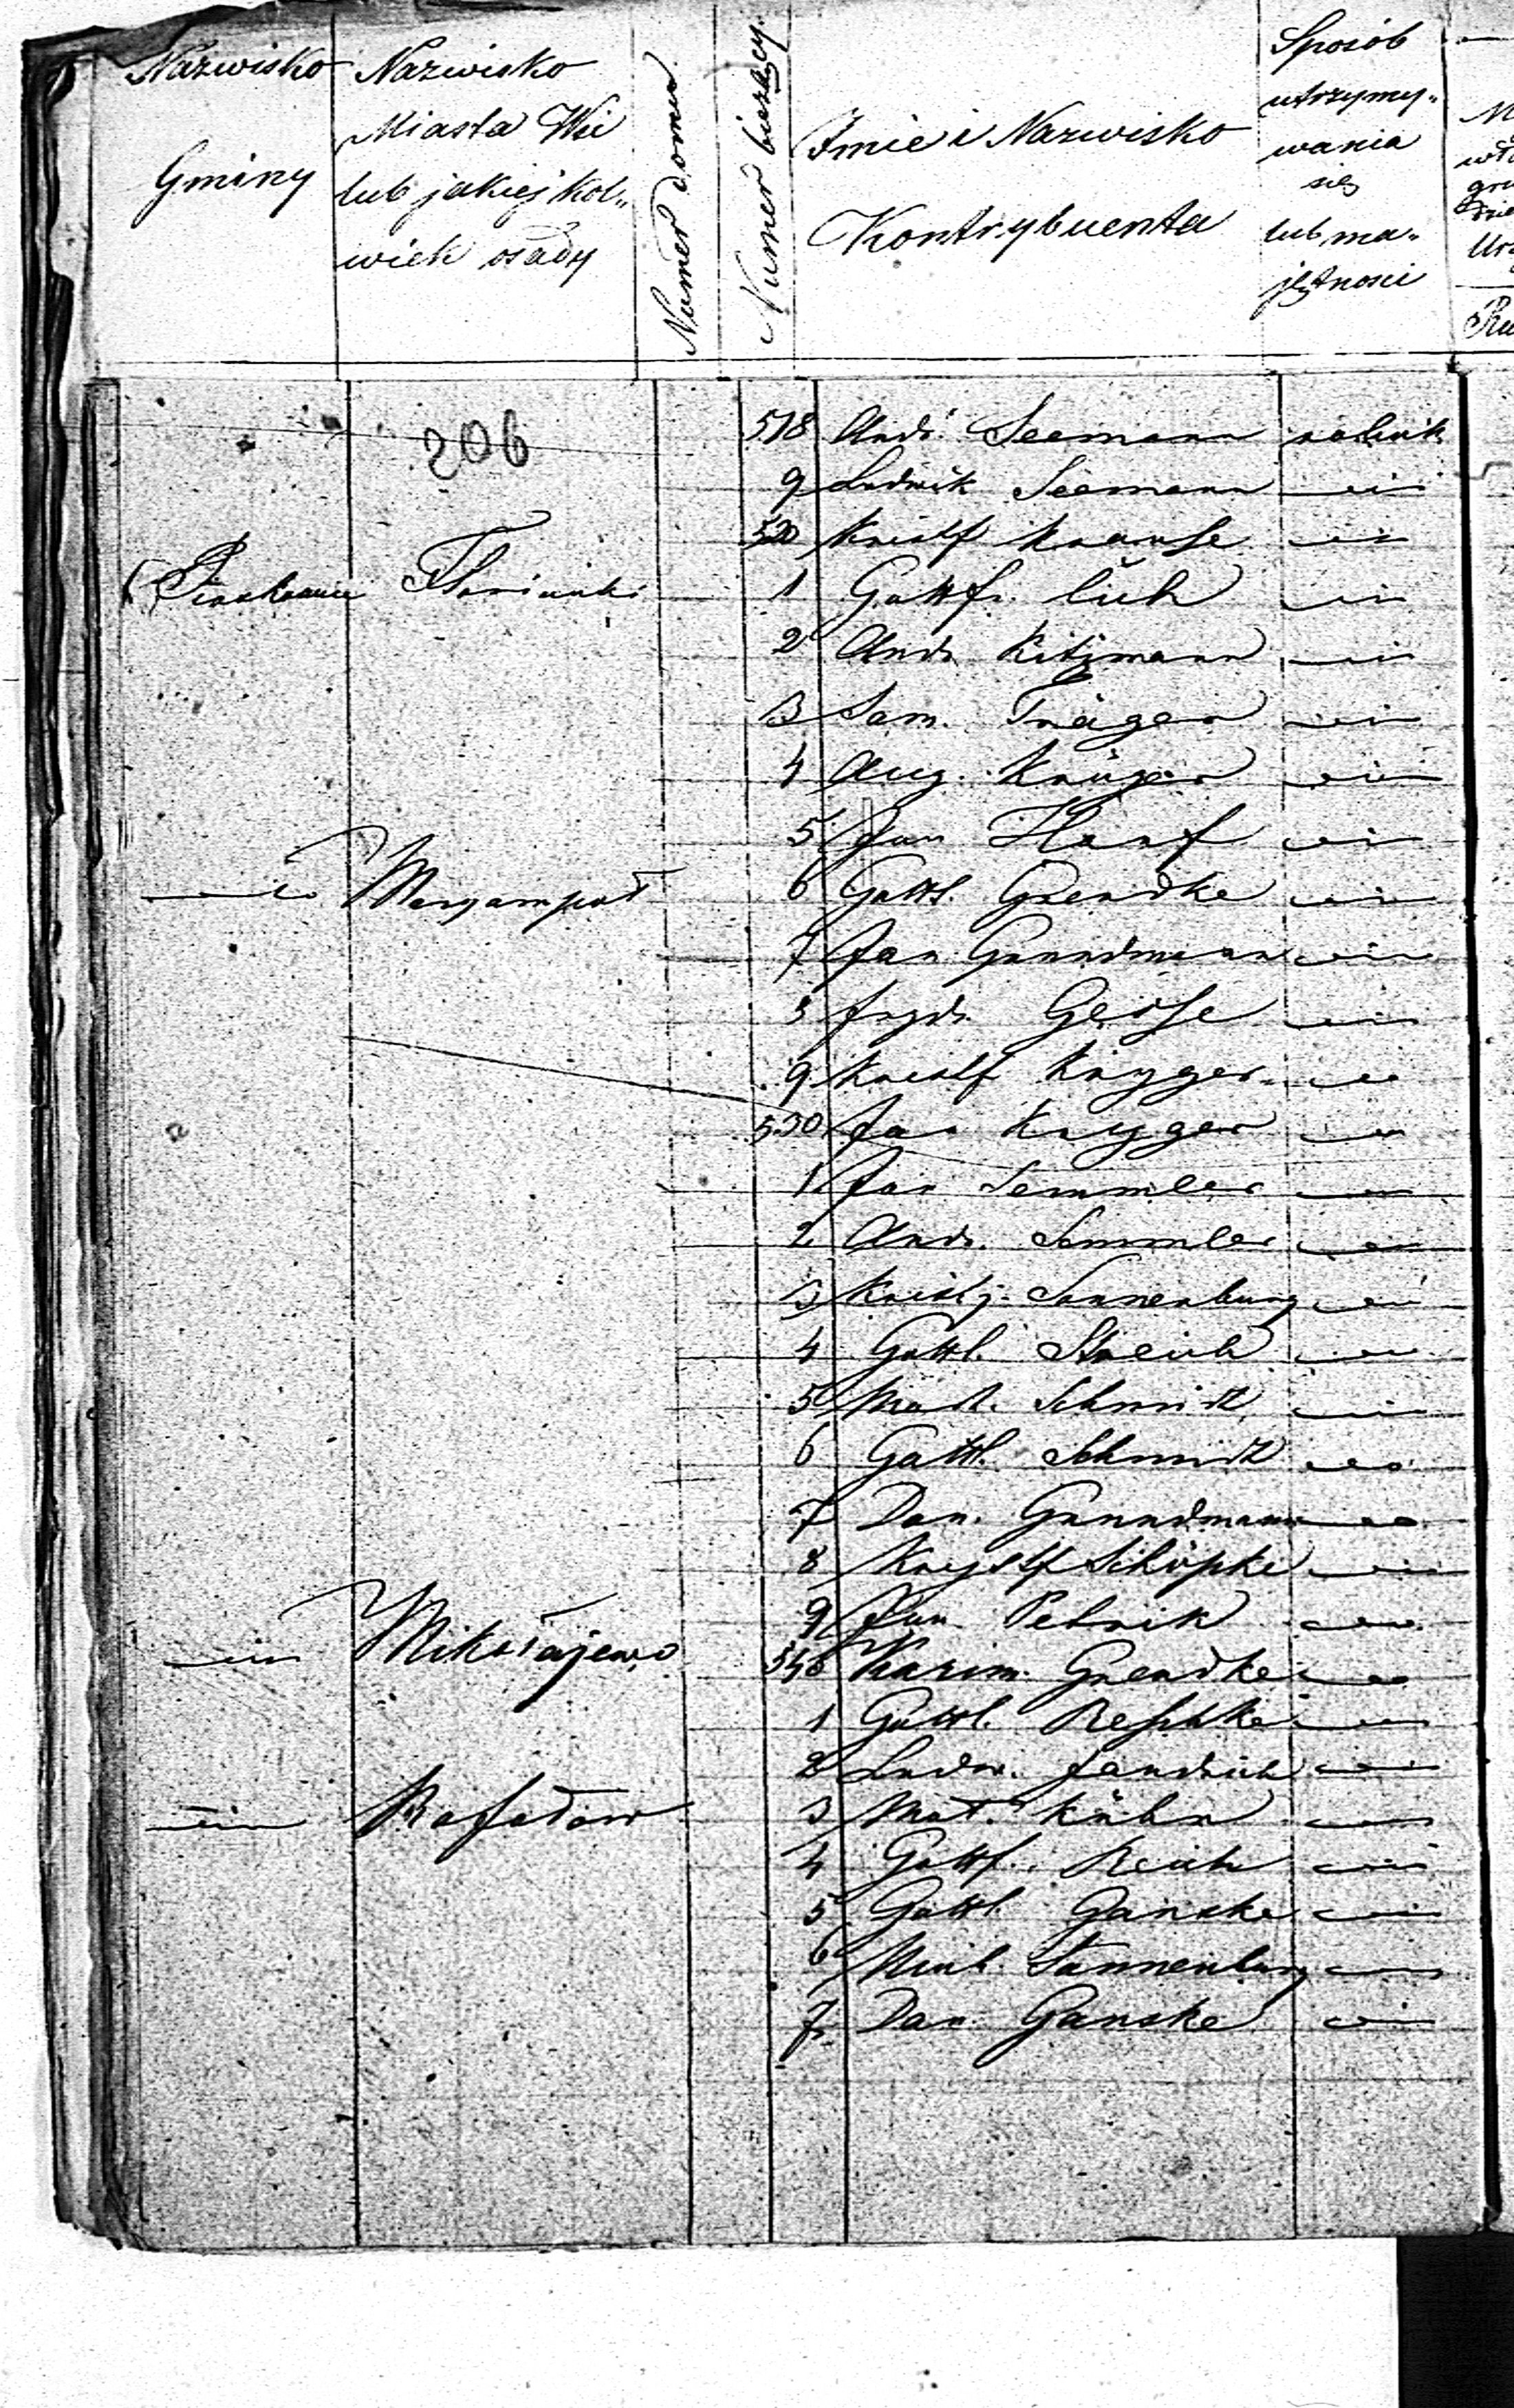 Nazwisko Gminy
Nazwisko Miasta Wsi lub jakiej kol„ wiek osady
Numer domu
Numer bieżący.
Imie i Nazwisko Kontrybuenta
Sposób utrzymy„ wania się lub ma„ jętności
206
518 Andr. Seemann rolnik
9 Ludwik Seemann
520 Kristf Krause
1 Gottfr.
2 Andr.
3 Sam. Träger
4 Aug. Krüger
5 Jan Harf
Maryampol 6 Gottl. Grendke
7 Jan Grundmann
8 Frydr. Gesse
9 Kristf Kryger
530 Jan Kryger
1 Jan Semmler
2 Andr. Semmler
3 Sonnenburg
4 Gottl. Streich
5 Mart. Schmidt
6 Gottl. Schmidt
7 Dan. Grundmann
8 Krystf Schöpke
9 Jan Petrik
Mikołajewo 540 Kazim. Grendke
1 Gottl. Reschke
2 Ludw. Jendrich
3 Mat. Kühn
4 Gottf. Reich
5 Gottl. Ganske
6 Mich. Sonnenburg
7 Dan. Ganske